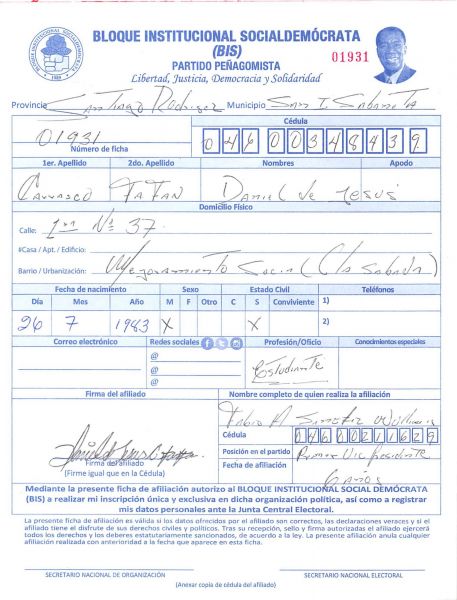 BLOQUE INSTITUCIONAL SOCIALDEMÓCRATA
(BIS)
PARTIDO PEÑAGOMISTA
Libertad, Justicia, Democracia y Solidaridad
01931
Provincia Santiago Rodriguez Municipio San I. Sabaneta
Cédula
01931 04600348439
Número de ficha
1er. Apellido 2do. Apellido Nombres Apodo
Carrasco Daniel de Jesus
Domicilio Físico
Calle: 1ra Nº 37
#Casa / Apt. / Edificio:
Barrio / Urbanización: Mejoramiento Social
Fecha de nacimiento Sexo Estado Civil Teléfonos
Día Mes Año M F Otro C S Conviviente 1)
26 7 1983 X X 2)
Correo electrónico Redes sociales Profesión/Oficio Conocimientos especiales
@ Estudiante
@
@
Firma del afiliado Nombre completo de quien realiza la afiliación
Fabio A Sanchez
Cédula 04600211629
Posición en el partido Primer Vicepresidente
Firma del afiliado
(Firme igual que en la Cédula)
Fecha de afiliación
6 años
Mediante la presente ficha de afiliación autorizo al BLOQUE INSTITUCIONAL SOCIAL DEMÓCRATA
(BIS) a realizar mi inscripción única y exclusiva en dicha organización política, así como a registrar
mis datos personales ante la Junta Central Electoral.
La presente ficha de afiliación es válida si los datos ofrecidos por el afiliado son correctos, las declaraciones veraces y si el
afiliado tiene el disfrute de sus derechos civiles y políticos. Tras su recepción, sello y firma autorizadas el afiliado ejercerá
todos los derechos y los deberes estatutariamente sancionados, de acuerdo a la ley. La presente afiliación anula cualquier
afiliación realizada con anterioridad a la fecha que aparece en esta ficha.
SECRETARIO NACIONAL DE ORGANIZACIÓN SECRETARIO NACIONAL ELECTORAL
(Anexar copia de cédula del afiliado)